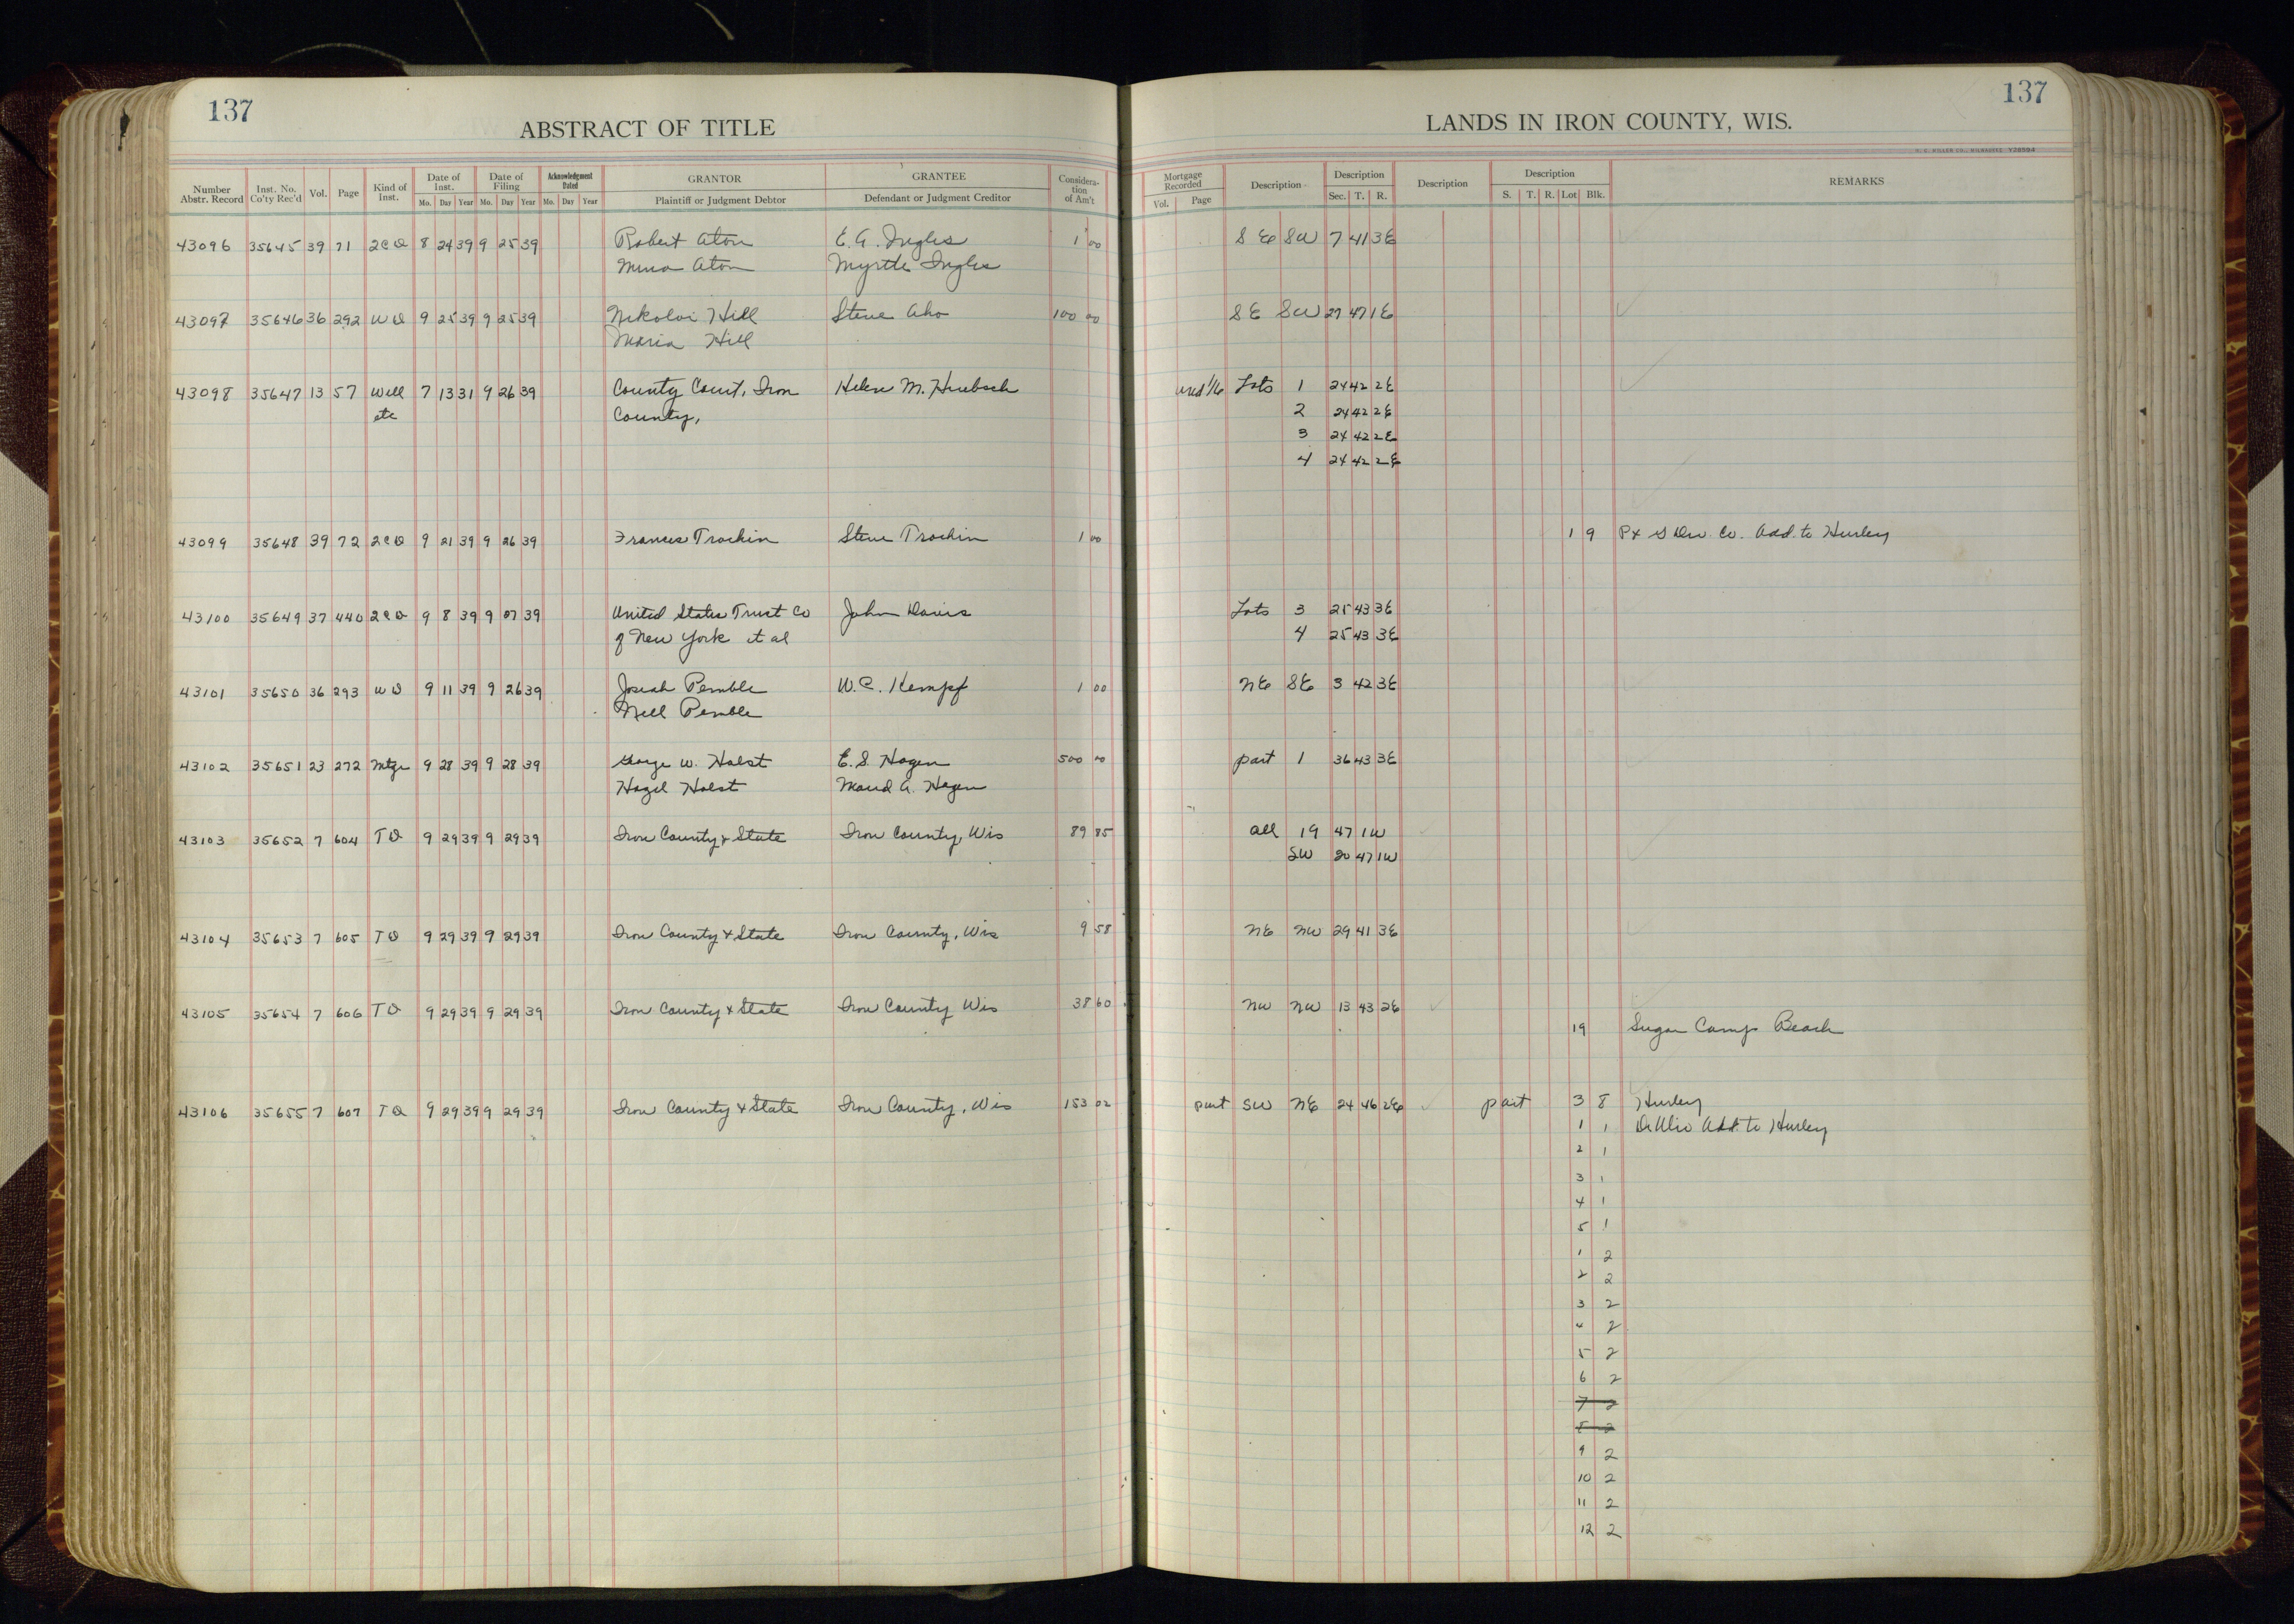 137
137
ABSTRACT OF TITLE
LANDS IN IRON COUNTY, WIS.
H. C. MILLER CO., MILWAUKEE Y28594
Number Abstr. Record Inst. No. Co'ty Rec'd Vol. Page Kind of Inst. Date of Inst. Mo. Day Year Date of Filing Mo. Day Year Acknowledgment Dated Mo. Day Year GRANTOR Plaintiff or Judgment Debtor GRANTEE Defendant or Judgment Creditor Considera-tion of Am't Mortgage Recorded Vol. Page Description Description Sec. T. R. Description Description S. T. R. Lot Blk. REMARKS
43096 35645 39 71 2CD 8 24 39 9 25 39 Robert Aton E. G. Ingles 1 00 SE SW 7 41 3E
Mina Aton Myrtle Ingles
43097 35646 36 292 WD 9 25 39 9 25 39 Nikolai Hill Steve Aho 100 00 SE SW 27 47 1E
Maria Hill
43098 35647 13 57 Will 7 13 31 9 26 39 County Court, Iron Helen M. Huebsch und 1/6 Lots 1 24 42 2E
etc County, 2 24 42 2E
3 24 42 2E
4 24 42 2E
43099 35648 39 72 2CD 9 21 39 9 26 39 Frances Trochin Steve Trochin 1 00 1 9 P+ S Dev. Co. Add. to Hurley
43100 35649 37 440 2CD 9 8 39 9 07 39 United States Trust Co John Davis Lots 3 25 43 3E
of New York et al 4 25 43 3E
43101 35650 36 293 WD 9 11 39 9 26 39 Josiah Pemble W. C. Kempf 1 00 NE SE 3 42 3E
Nell Pemble
43102 35651 23 272 Mtge 9 28 39 9 28 39 George W. Holst E. S. Hagen 500 00 part 1 36 43 3E
Hazel Holst Maud A. Hagen
43103 35652 7 604 TD 9 29 39 9 29 39 Iron County & State Iron County, Wis 89 85 all 19 47 1W
SW 20 47 1W
43104 35653 7 605 TD 9 29 39 9 29 39 Iron County & State Iron County, Wis 9 58 NE NW 29 41 3E
43105 35654 7 606 TD 9 29 39 9 29 39 Iron County & State Iron County Wis 38 60 NW NW 13 43 2E
19 Sugar Camp Beach
43106 35655 7 607 TD 9 29 39 9 29 39 Iron County & State Iron County, Wis 153 02 part SW NE 24 46 2E part 3 8 Hurley
1 1 Add. to Hurley
2 1
3 1
4 1
5 1
1 2
2 2
3 2
4 2
5 2
6 2
7 2
8 2
9 2
10 2
11 2
12 2